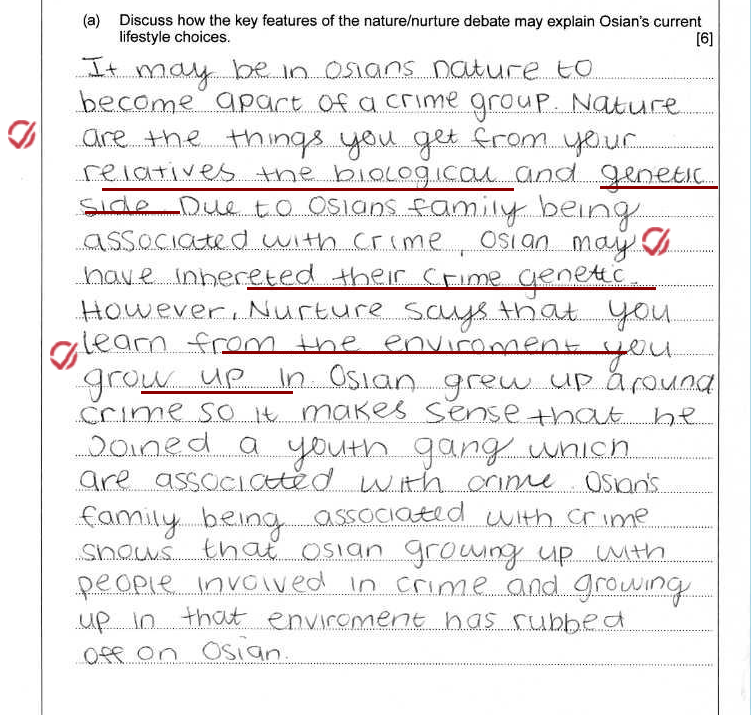 (a) Discuss how the key features of the nature/nurture debate may explain Osian's current
lifestyle choices.
[6]
It may be in Osians nature to
become apart of a crime group. Nature
are the things you get from your
relatives the biological and genetic
side Due to Osians family being
associated with crime, Osian may
have inhereted their crime genetic.
However, Nurture says that you
learn from the enviroment you
grow up in. Osian grew up around
crime so it makes sense that he
Joined a youth gang which
are associated with crime. Osian's
family being associated with crime
shows that osian growing up with
people involved in crime and growing
up in that enviroment has rubbed
off on Osian.